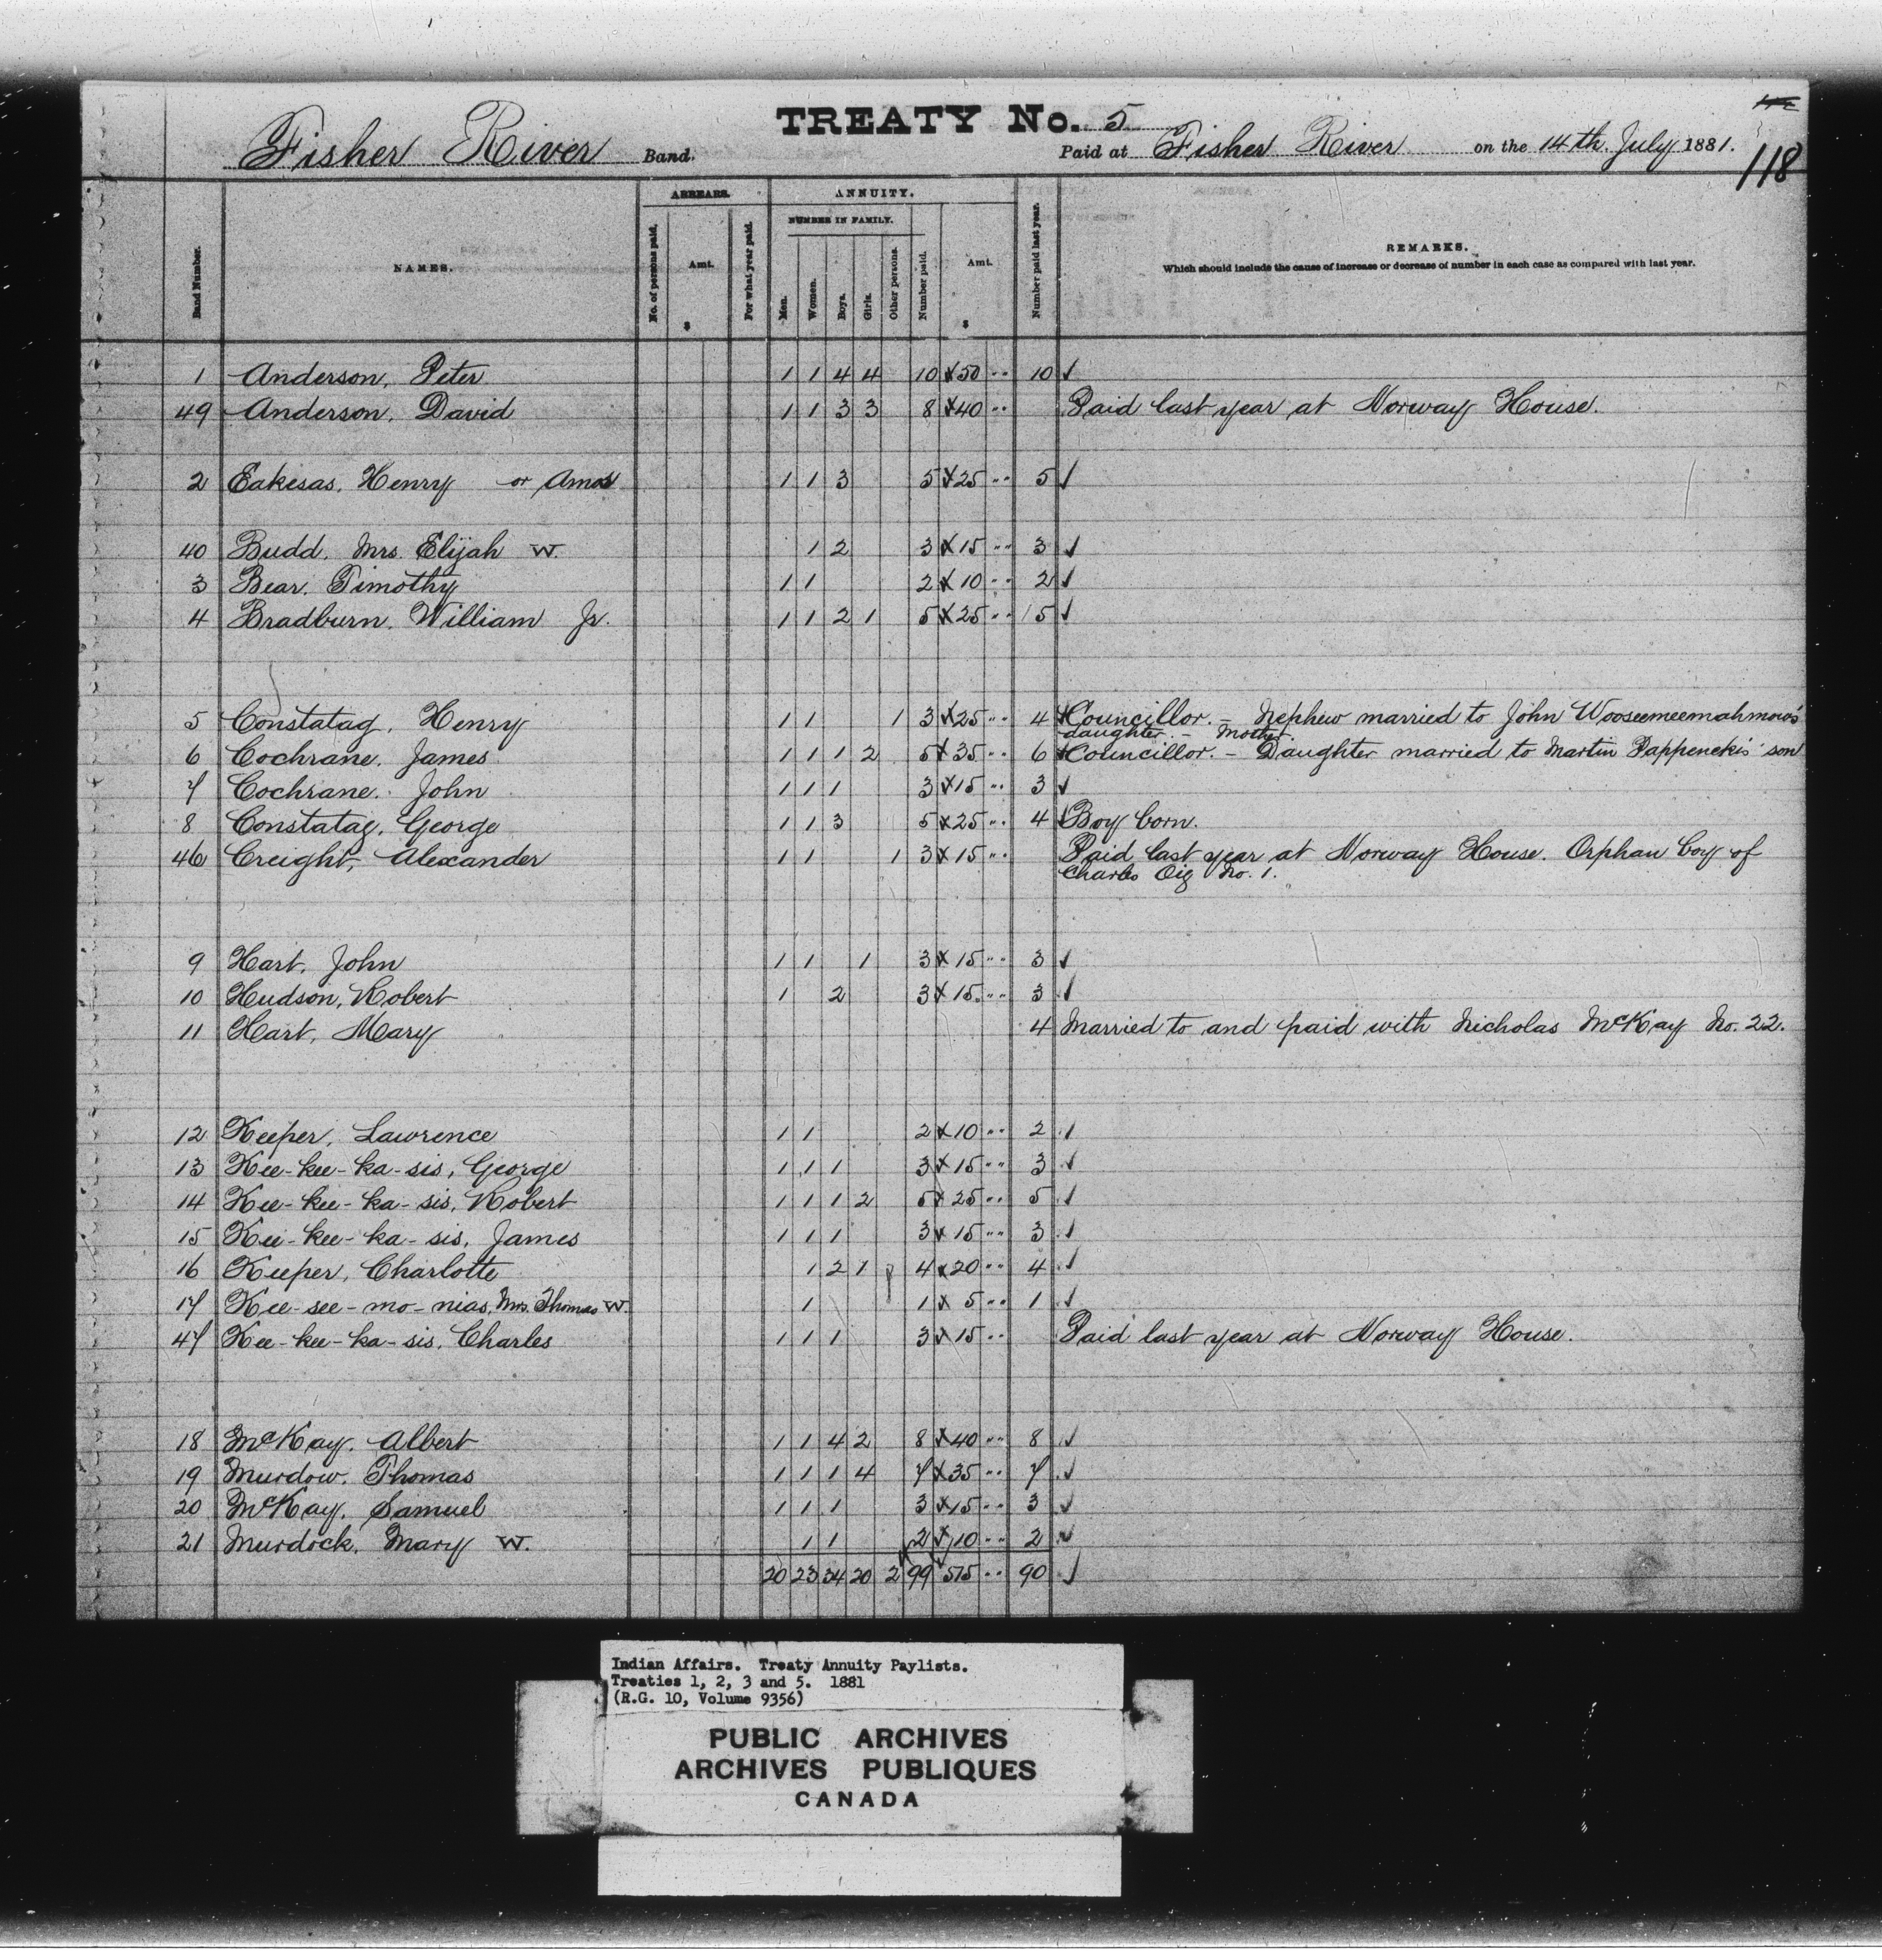 TREATY No. 5
118
Fisher River Band.
Paid at Fisher River on the 14th July 1881.
ARREARS. ANNUITY.
NUMBER IN FAMILY.
Band Number. NAMES. No. of persons paid. Amt. $ For what year paid. Men. Women. Boys. Girls. Other persons. Number paid. Amt. $ Number paid last year. REMARKS.
Which should include the cause of increase or decrease of number in each case as compared with last year.
1 Anderson, Peter 1 1 4 4 10 x 50 " 10 ✓
49 Anderson, David 1 1 3 3 8 x 40 " Paid last year at Norway House.
2 Eakesas, Henry or Amos 1 1 3 5 x 25 " 5 ✓
40 Budd, Mrs. Elijah W. 1 2 3 x 15 " 3 ✓
3 Bear, Timothy 1 1 2 x 10 " 2 ✓
4 Bradburn, William Jr. 1 1 2 1 5 x 25 " 5 ✓
5 Constatag, Henry 1 1 1 3 x 25 " 4 ✓ Councillor. - Nephew married to John Wooseemeemahmow's
daughter. - Mother.
6 Cochrane, James 1 1 1 2 5 x 35 " 6 ✓ Councillor. - Daughter married to Martin Pappenekis' son
7 Cochrane, John 1 1 1 3 x 15 " 3 ✓
8 Constatag, George 1 1 3 5 x 25 " 4 ✓ Boy born.
46 Creight, Alexander 1 1 1 3 x 15 " Paid last year at Norway House. Orphan boy of
Charles Oig No. 1.
9 Hart, John 1 1 1 3 x 15 " 3 ✓
10 Hudson, Robert 1 2 3 x 15 " 3 ✓
11 Hart, Mary 4 Married to and paid with Nicholas McKay No. 22.
12 Keeper, Lawrence 1 1 2 x 10 " 2 ✓
13 Kee-kee-ka-sis, George 1 1 1 3 x 15 " 3 ✓
14 Kee-kee-ka-sis, Robert 1 1 1 2 5 x 25 " 5 ✓
15 Kee-kee-ka-sis, James 1 1 1 3 x 15 " 3 ✓
16 Keeper, Charlotte 1 2 1 4 x 20 " 4 ✓
17 Kee-see-mo-nias, Mrs. Thomas W. 1 1 x 5 " 1 ✓
47 Kee-kee-ka-sis, Charles 1 1 1 3 x 15 " Paid last year at Norway House.
18 McKay, Albert 1 1 4 2 8 x 40 " 8 ✓
19 Murdow, Thomas 1 1 1 4 7 x 35 " 7 ✓
20 McKay, Samuel 1 1 1 3 x 15 " 3 ✓
21 Murdock, Mary W. 1 1 2 x 10 " 2 ✓
20 23 34 20 2 99 515 " 90 ✓
Indian Affairs. Treaty Annuity Paylists.
Treaties 1, 2, 3 and 5. 1881
(R.G. 10, Volume 9356)
PUBLIC ARCHIVES
ARCHIVES PUBLIQUES
CANADA